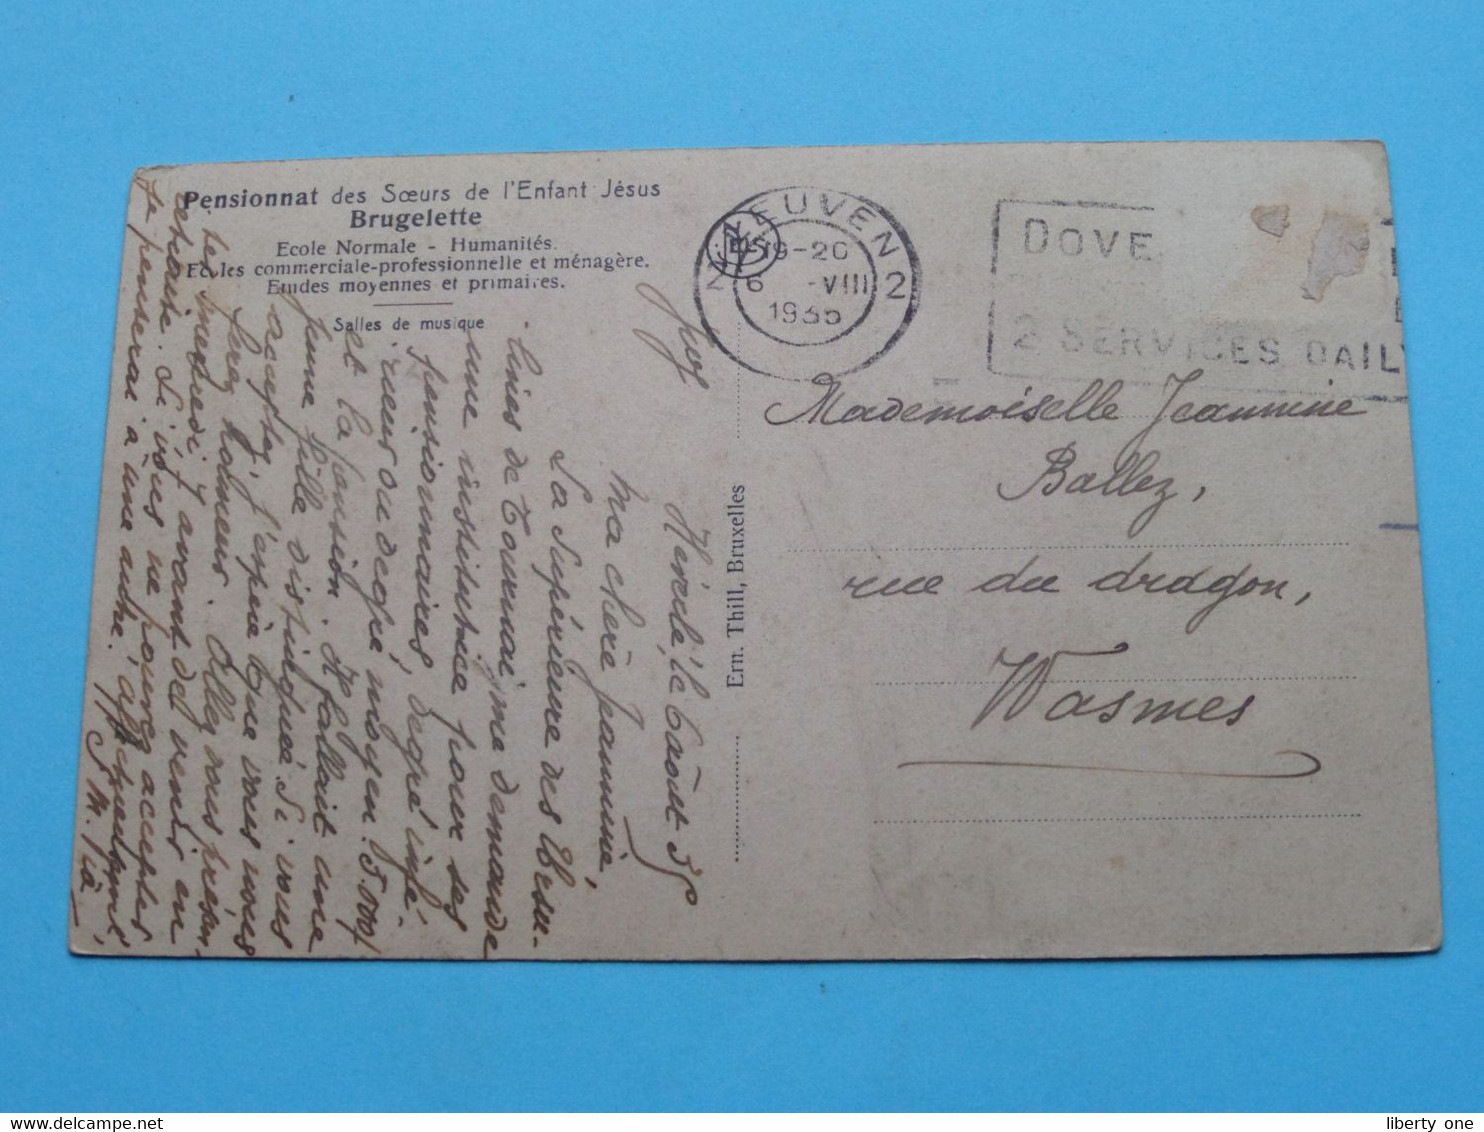 Pensionnat des Sœurs de l'Enfant Jésus
Brugelette
Ecole Normale - Humanités.
Ecoles commerciale-professionnelle et ménagère.
Etudes moyennes et primaires.
Salles de musique
EUVEN 2
19-20
6 -VIII
1935
DOVE
2 SERVICES DAILY
Mademoiselle Jeannine
Ballez,
rue du dragon,
Wasmes
Ern. Thill, Bruxelles
le 6 août 35
Ma chère Jeannine,
La Supérieure des Ursu-
lines de Tournai, me demande
une institutrice pour ses
pensionnaires, degré infé-
rieur ou degré moyen. 5.000f
et la pension. Il fallait une
jeune fille distinguée. Si vous
acceptez, j'espère que vous vous
ferez honneur. Allez vous présen-
ter mercredi, avant de venir en
retraite. Si vous ne pouvez accepter
je penserai à une autre.
S. M.
liberty one